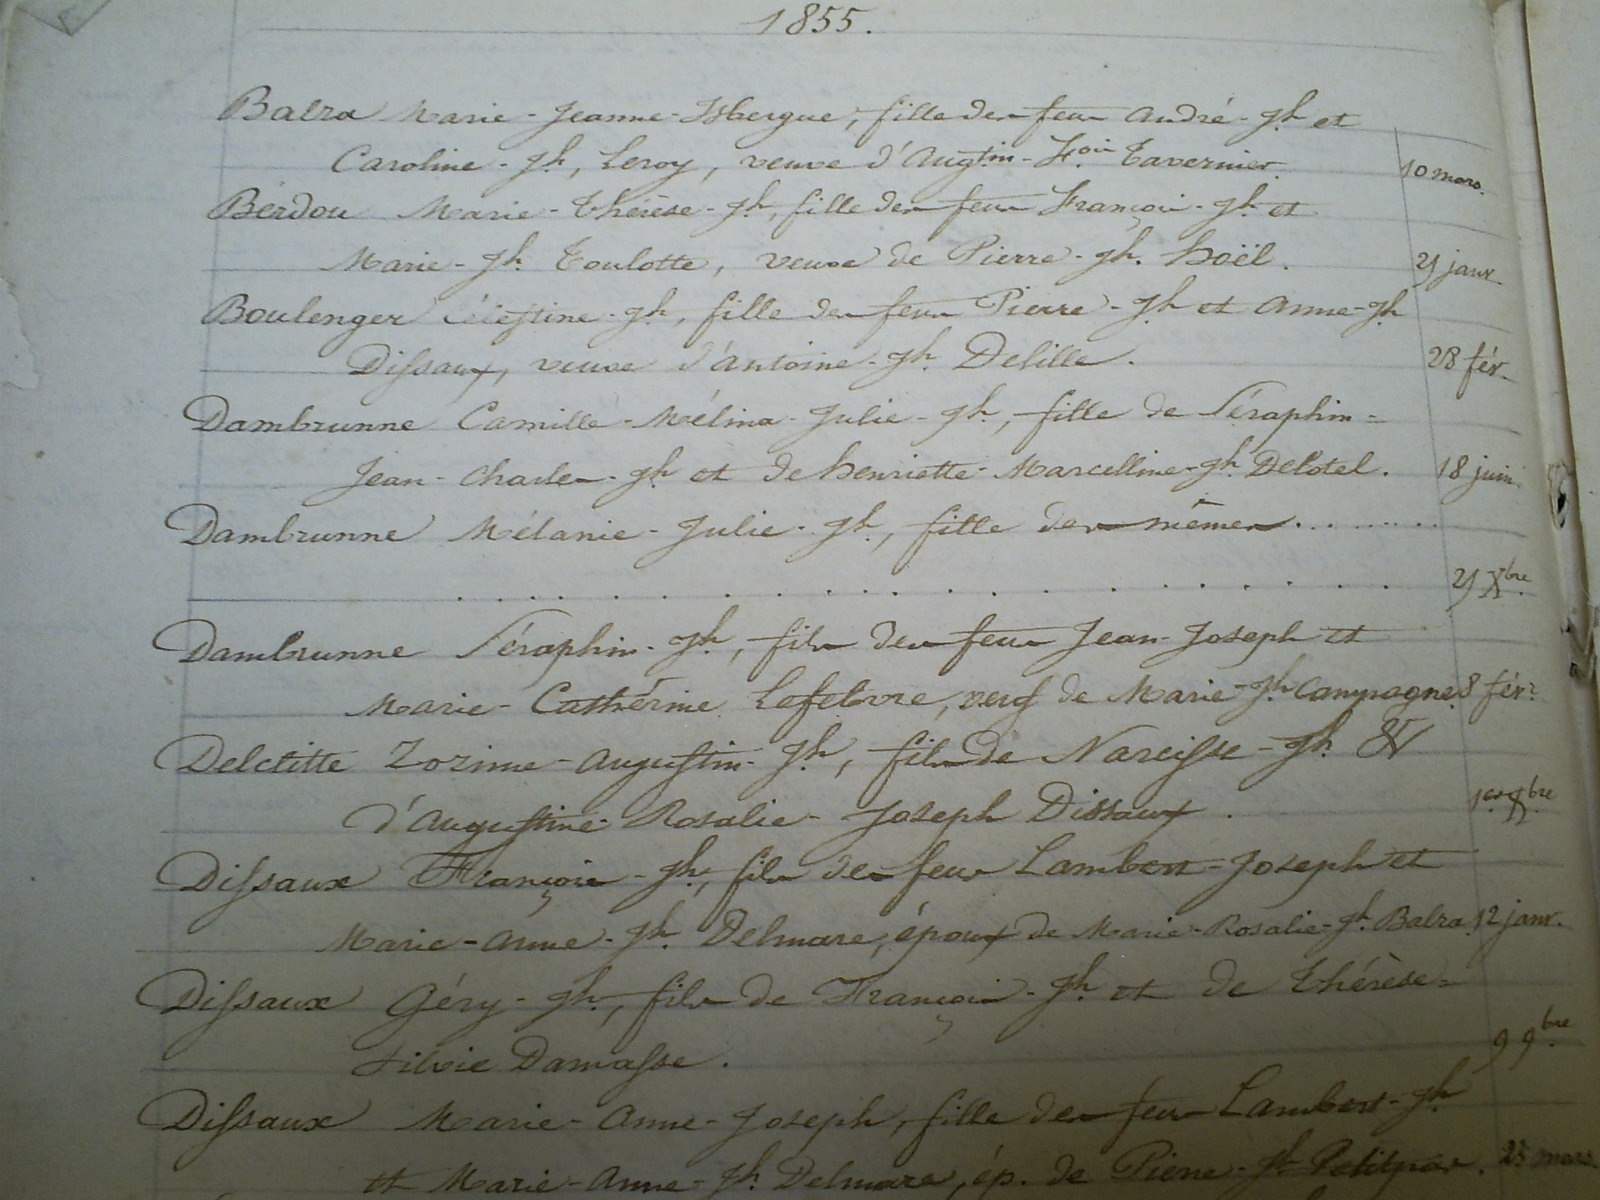 1855.
Balza Marie-Jeanne-Isbergue, fille des feus André-Jh et
Caroline-Jh, Leroy, veuve d'Augtin-Fois Tavernier. 10 mars.
Berdou Marie-Thérèse-Jh, fille des feus François-Jh et
Marie-Jh Toulotte, veuve de Pierre-Jh. hoël. 21 janr.
Boulenger Célestine-Jh, fille des feus Pierre-Jh et Anne-Jh
Dissaux, veuve d'Antoine-Jh Delille. 28 fér.
Dambrunne Camille-Mélina-Julie-Jh, fille de Séraphin=
Jean-Charles-Jh et de henriette-Marcelline-Jh Delotel. 18 juin.
Dambrunne Mélanie-Julie-Jh, fille des mêmes.........
. . . . . . . . . . . . . . . . . . 21 Xbre.
Dambrunne Séraphin-Jh, fils des feus Jean-Joseph et
Marie-Cathérine Lefebvre, veuf de Marie-Jh Campagne. 8 fér.
Delctitte Zozime-Augustin-Jh, fils de Narcisse-Jh &
d'Augustine-Rosalie-Joseph Dissaux. 1er Xbre.
Dissaux François-Jh, fils des feus Lambert-Joseph et
Marie-Anne-Jh Delmare, époux de Marie-Rosalie-Jh Balza. 12 janr.
Dissaux Géry-Jh, fils de François-Jh et de Thérèse=
Silvie Damasse. 9 9bre.
Dissaux Marie-Anne-Joseph, fille des feus Lambert-Jh
et Marie-Anne-Jh Delmare, ép. de Pierre-Jh Petitpas. 23 mars.